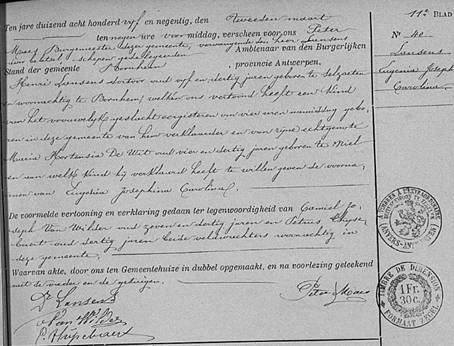 Ten jare duizend acht honderd vyf en negentig, den tweeden maart
ten negen ure voor middag, verscheen voor ons Peter
Maes Burgemeester dezer gemeente,
Ambtenaar van den Burgerlijken
Stand der gemeente Bornhem, provincie Antwerpen,
Henri Lansens doctoor oud vyf en dertig jaren geboren te Selzaeten
en woonachtig te Bornhem, welken ons vertoond heeft een kind
van het vrouwelyk geslacht eergisteren om vier uren namiddag gebo-
ren in deze gemeente van hem verklaarder en van zyne echtgenote
Maria Hortensia De Wit oud vier en dertig jaren geboren te Niel
en aan welk kind hy verklaard heeft te willen geven de voorna-
men van Eugenia Josephina Carolina
De voormelde vertooning en verklaring gedaan ter tegenwoordigheid van Camiel Jo-
seph Van Wilder oud zeven en dertig jaren en Petrus
oud en dertig jaren beide veldwachters woonachtig in
deze gemeente.
Waarvan akte, door ons ten Gemeentehuize in dubbel opgemaakt, en na voorlezing geteekend
met de vader en de getuigen.
Dr Lansens
Van Wilder
Peter Maes
11e BLAD
N° 40
Lansens
Eugenia Joseph
Carolina
TIMBRE DE DIMENSION
1 Fr.
30 c.
FORMAAT ZEGEL